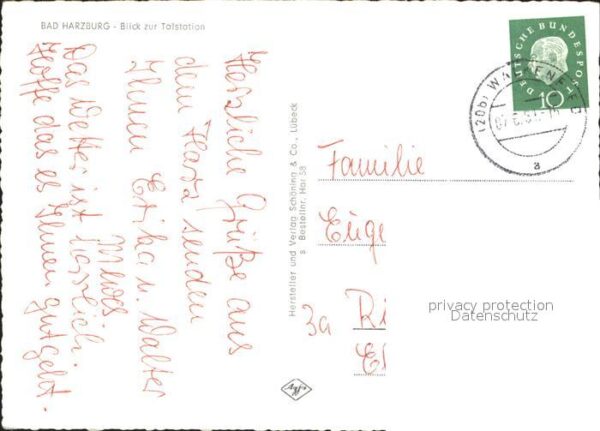 BAD HARZBURG - Blick zur Talstation
Herzliche Grüße aus
dem Harz senden
Ihnen Erika u. Walter
Das Wetter ist herrlich.
Hoffe das es Ihnen gutgeht.
Hersteller und Verlag Schöning & Co., Lübeck
Bestellnr. Har 58
DEUTSCHE BUNDESPOST
10
(20b)
a
Familie
Euge
Ri
3a
privacy protection
Datenschutz
Agfa